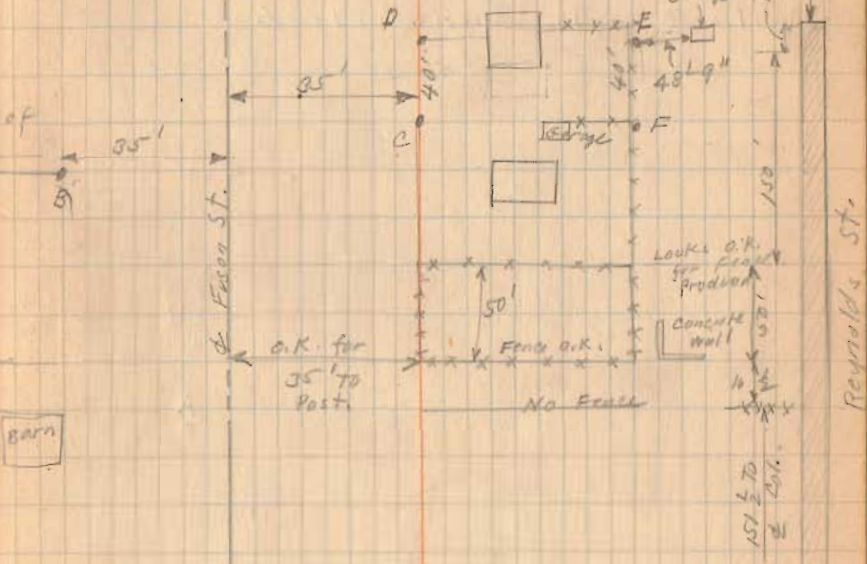 D
E
35'
40'
40'
48'-9"
of
35'
C
Garage
F
B
150'
℄ Fuson St.
Reynolds St.
Looks O.K.
for Fence
Produced
50'
50'
Concrete
Wall
O.K. for
35' To
Post.
Fence O.K.
No Fence
Barn
151 1/2 To
℄ Col.